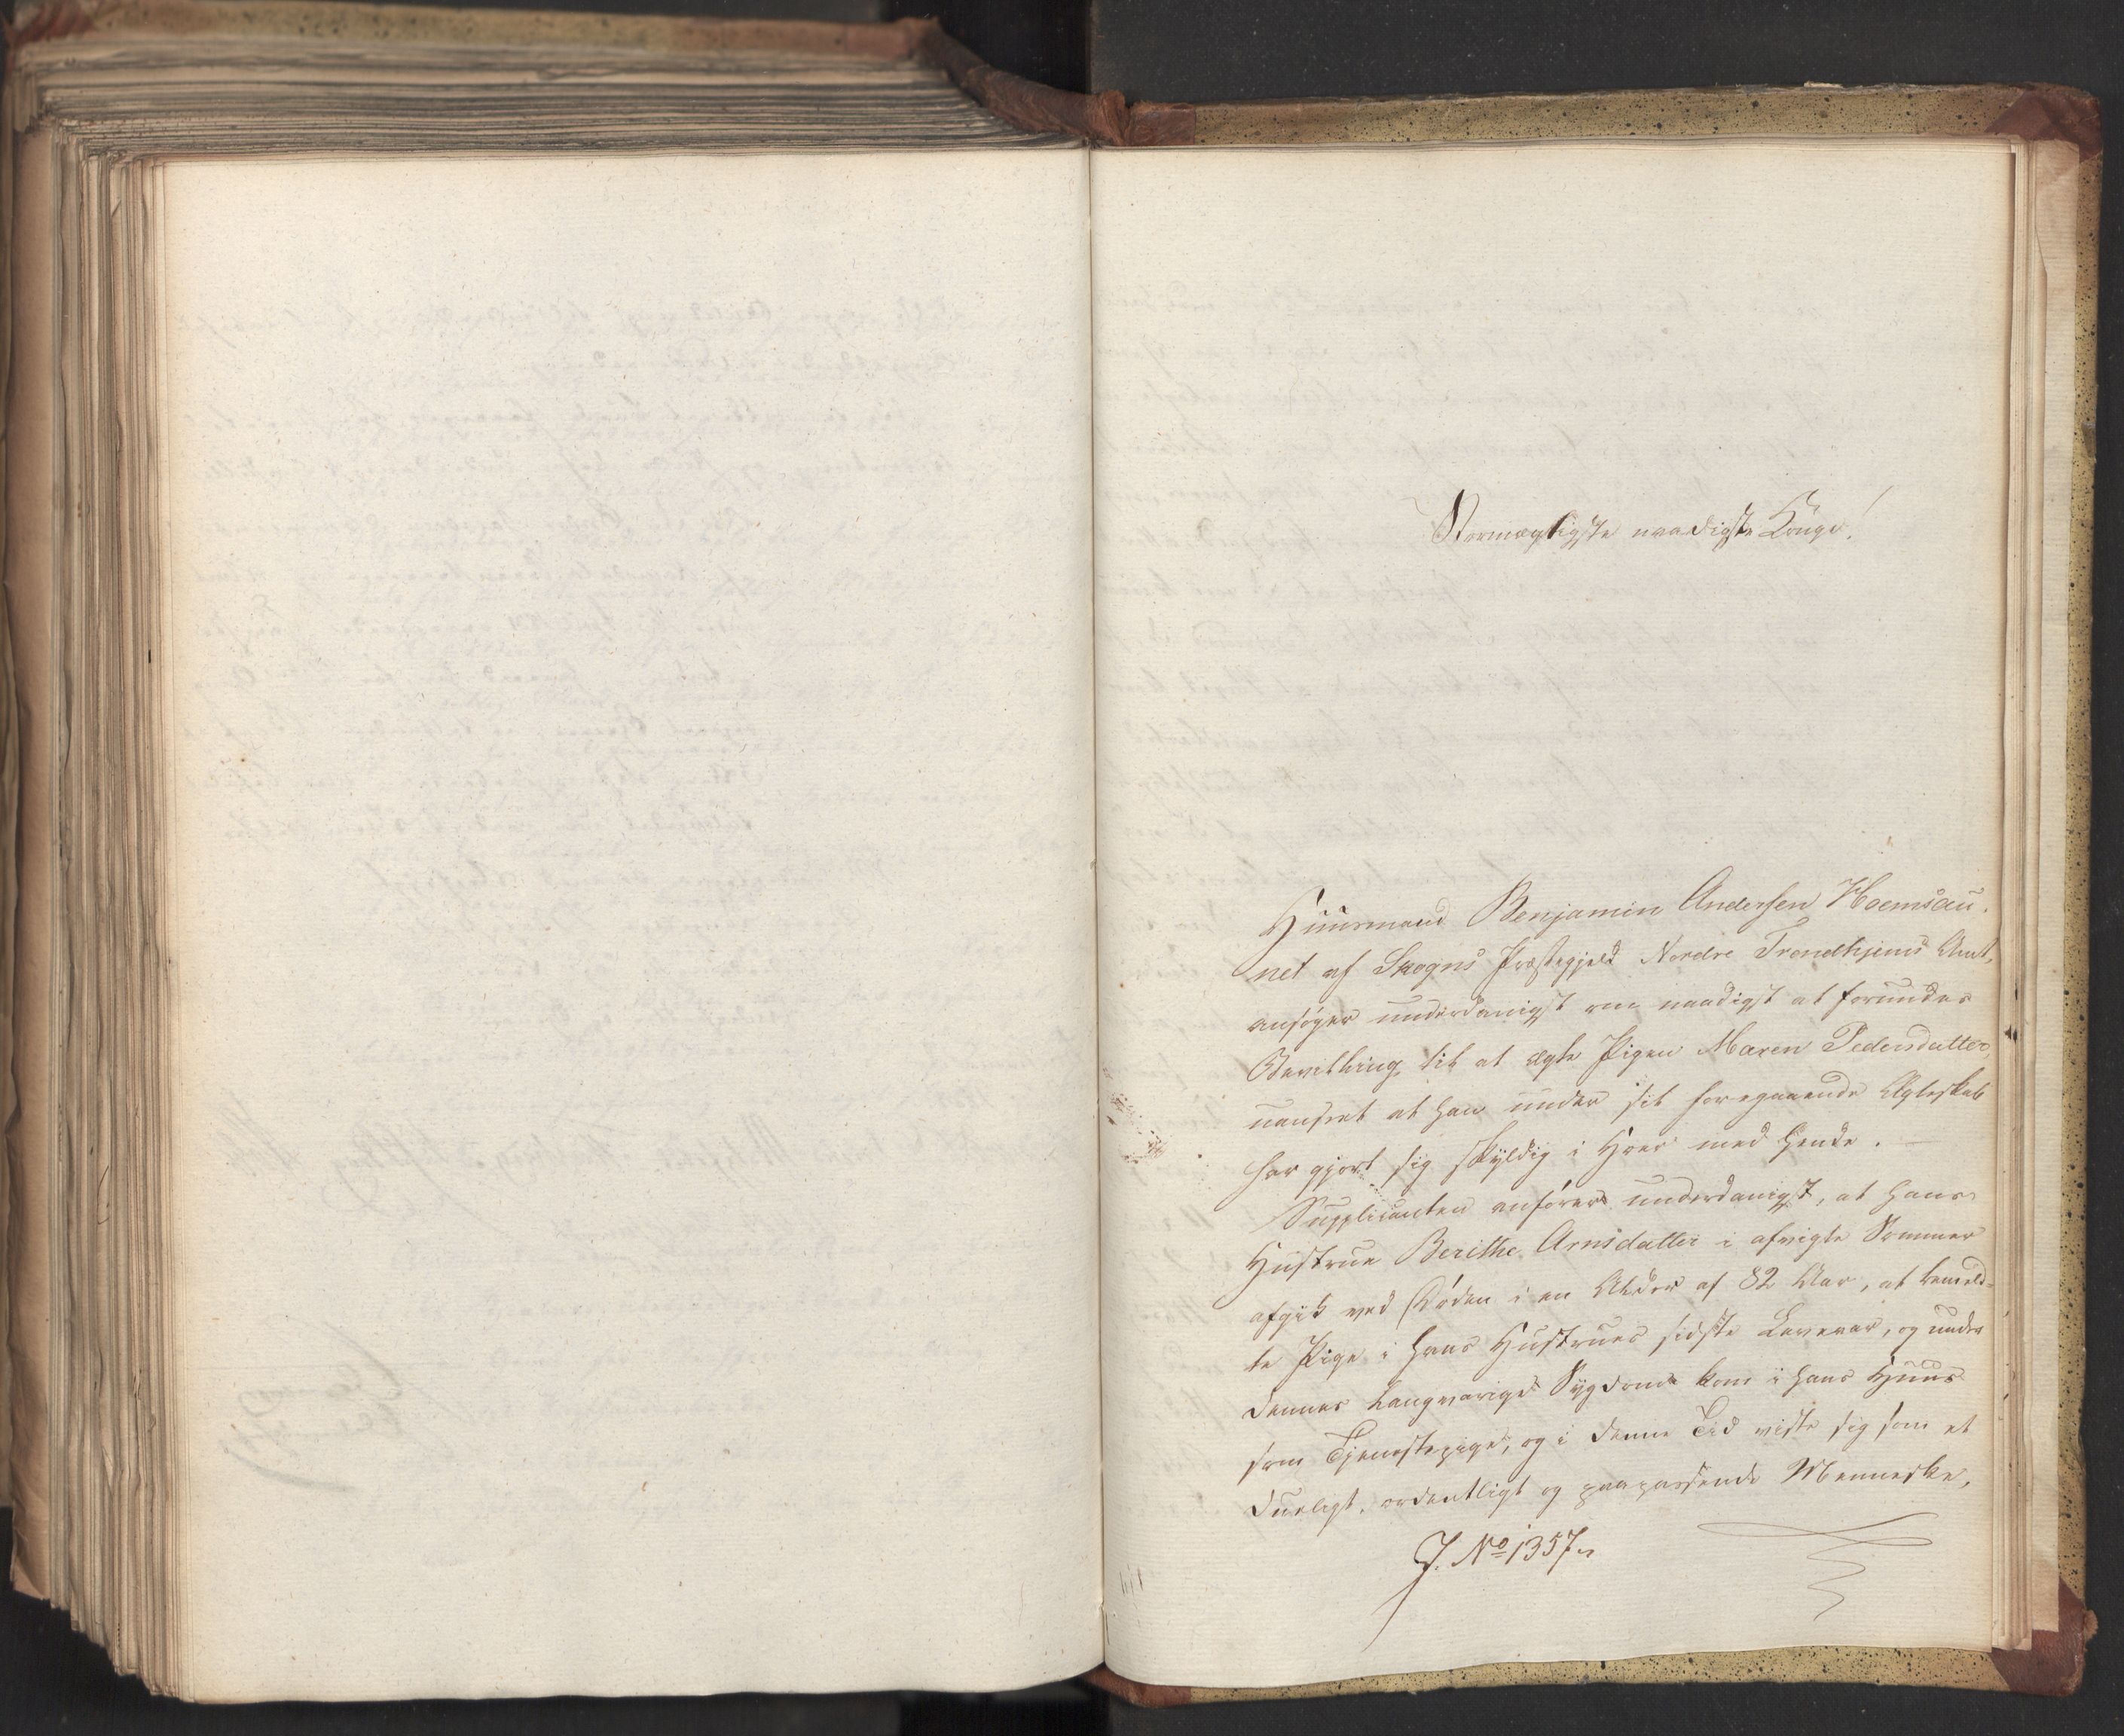 Stormægtigste naadigste Konge!
Huusmand Benjamin Andersen Hoemsau-
net af Skogns Præstegjeld Nordre Trondhjems Amt,
ansøger underdanigst om naadigst at forundes
Bevilling til at ægte Pigen Maren Pedersdatter,
uanseet at han under sit foregaaende Ægteskab
har gjort sig skyldig i Hoer med hende.
Supplicanten anfører underdanigst, at hans
Hustrue Berithe Arnsdatter i afvigte Sommer
afgik ved Døden i en Alder af 82 Aar, at bemeld-
te Pige i hans Hustrues sidste Leveaar, og under
dennes langvarige Sygdom kom i hans Huus
som Tjenestepige, og i denne Tid viste sig som et
dueligt, ordentligt og paapassende Menneske,
J. No 1357.